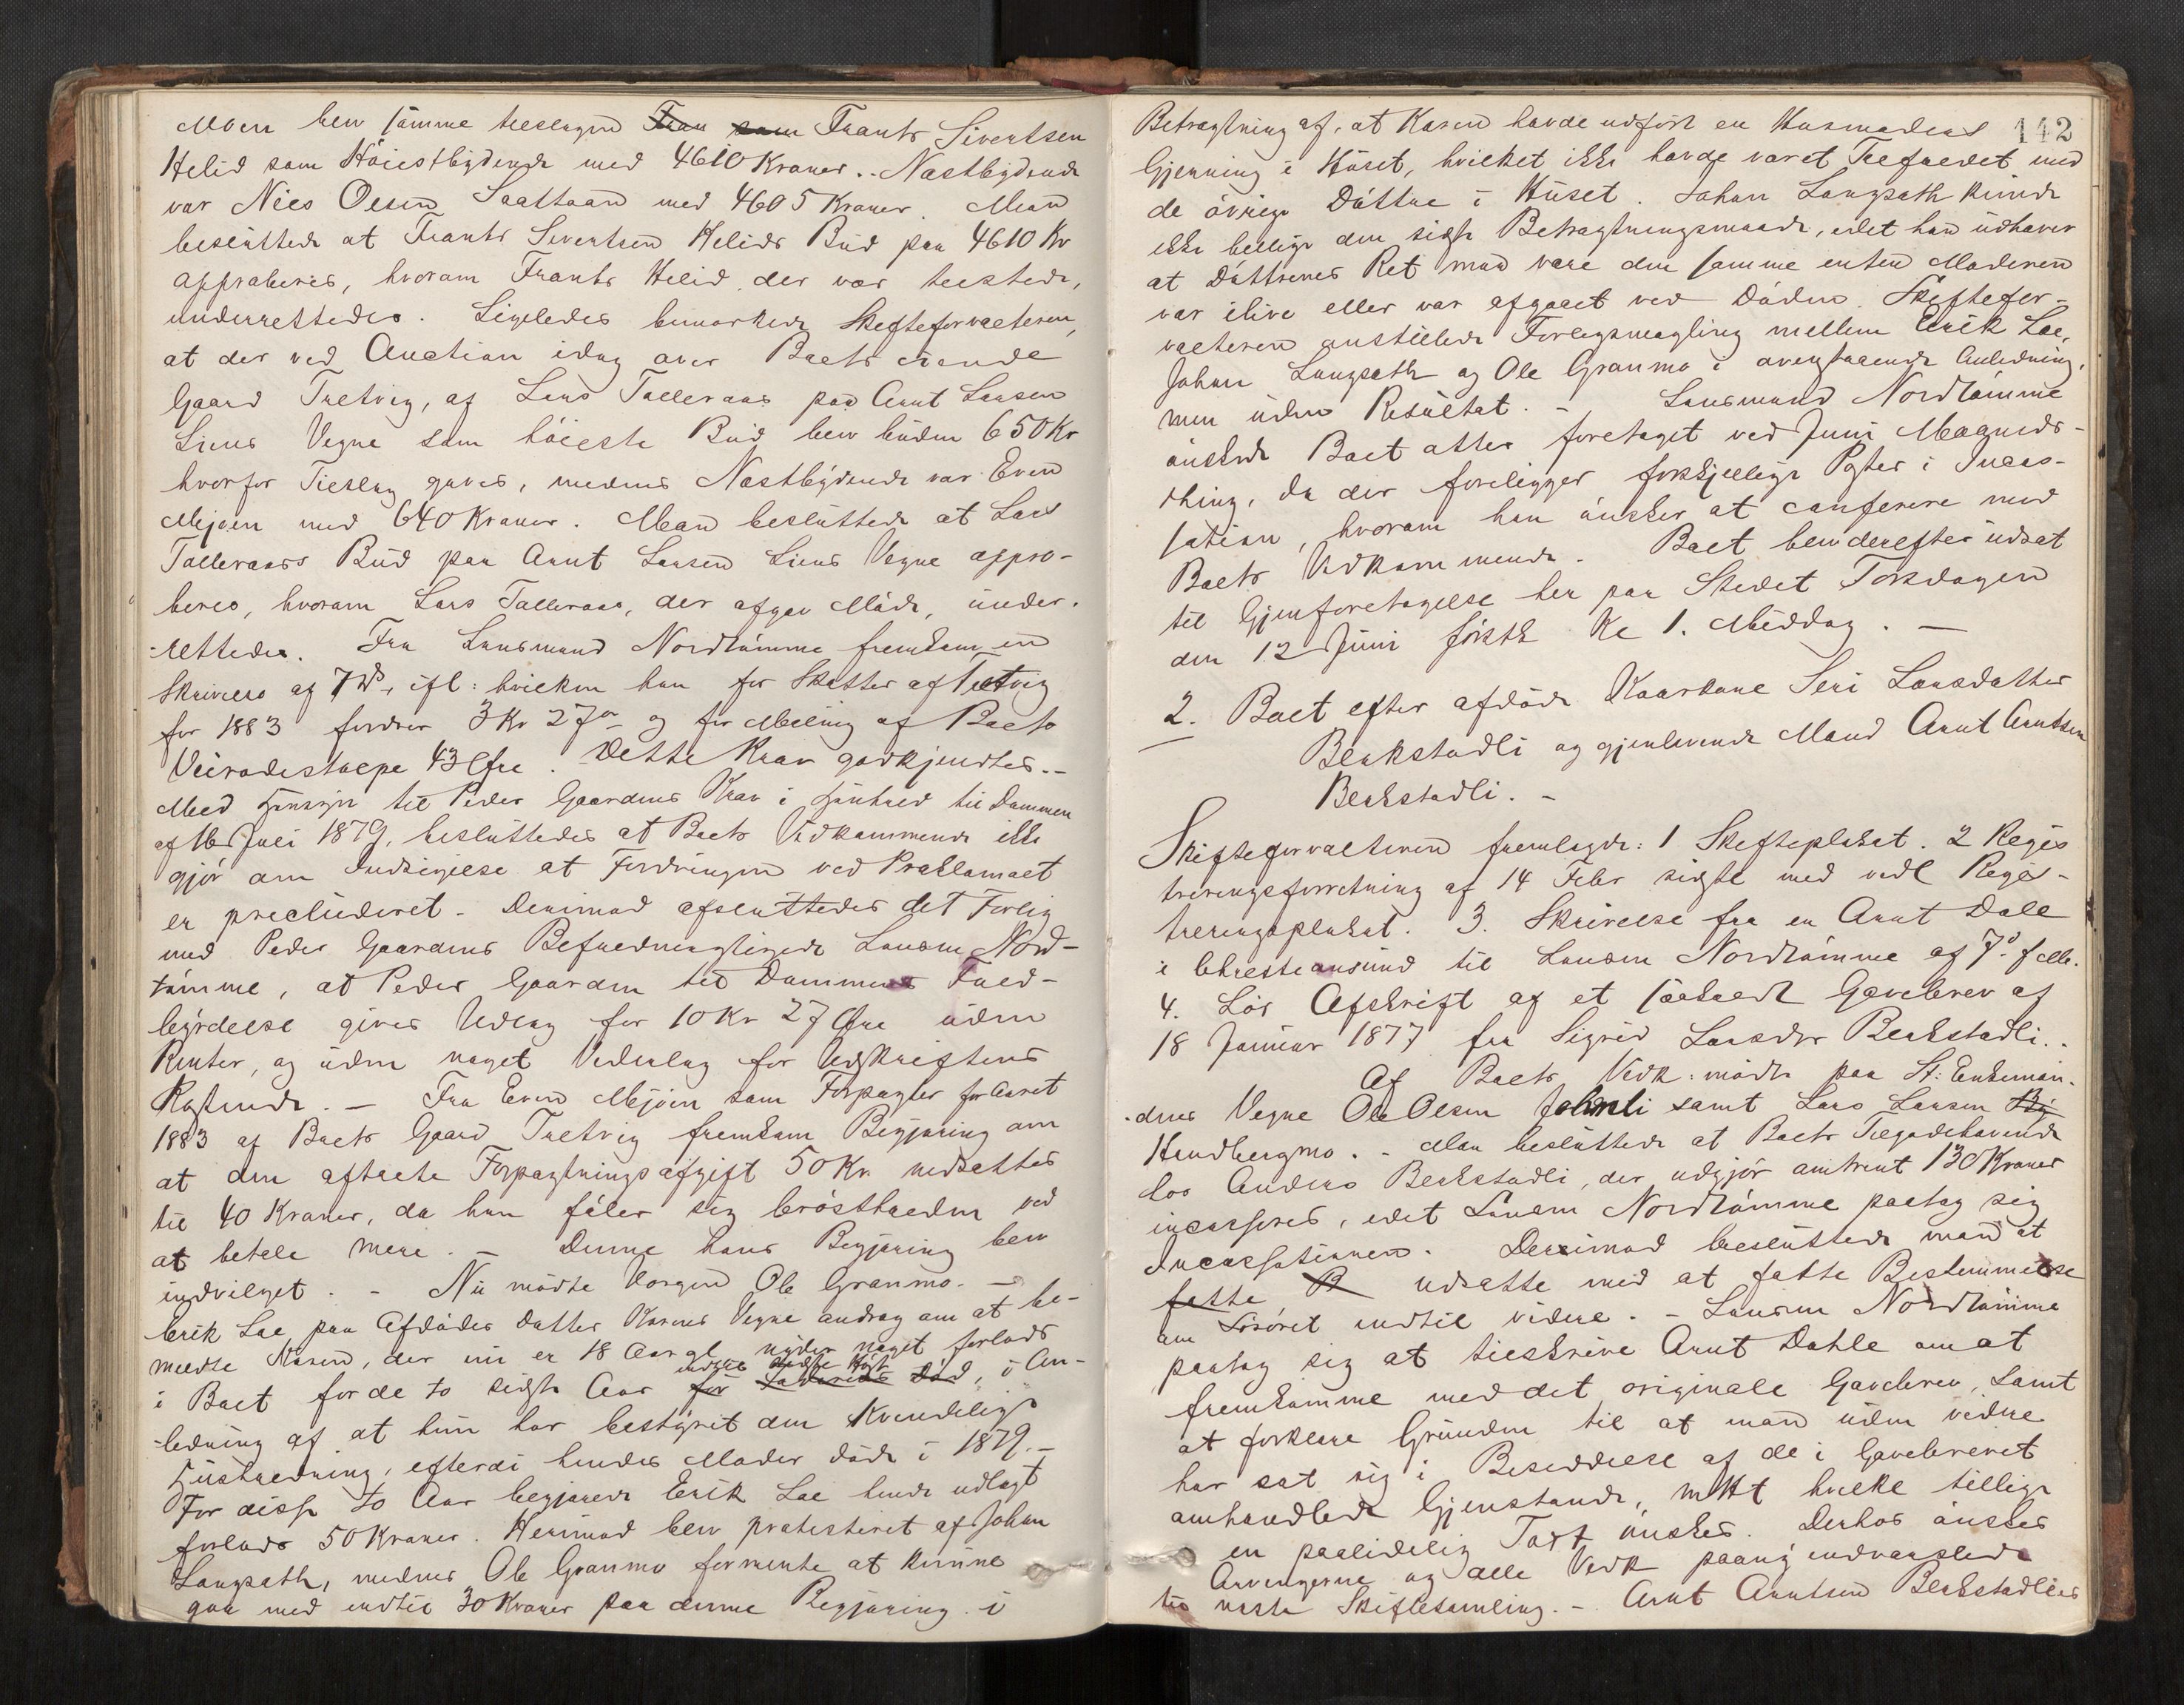 Moen blev samme tilslagen Fran som Frants Sivertsen
Helid som Höiestbydende med 4610 Kroner.. Næstbydende
var Niels Olsen Saattaan med 4605 Kroner. Man
besluttede at Frants Sivertsen Helids Bud paa 4610 Kr
approberes, hvorom Frants Helid, der var tilstede,
underrettedes. Ligeledes bemærkede Skifteforvalteren,
at der ved Auction idag over Boets eiende
Gaard Tretvig, af Lars Talleraas paa Arnt Larsen
Liens Vegne som höieste Bud blev buden 650 Kr
hvorfor Tilslag gaves, medens Næstbydende var Even
Mjøen med 640 Kroner. Man besluttede at Lars
Talleraas's Bud paa Arnt Larsen Liens Vegne appro-
beres, hvorom Lars Talleraas, der afgav Möde, under-
rettedes. Fra Lensmand Nordtömme fremkom en
Skrivelse af 7 ds, ifl: hvilken han for Skatter af Tretvig
for 1883 fordrer 3 Kr 27 ør og for Maling af Boets
Veirodestolpe 43 Øre. Dette Krav godkjendtes.-
Med Hensyn til Peder Gaardens Krav i Henhold til Dommen
af 16 Juli 1879, besluttedes at Boets Vedkommende ikke
gjör om Indsigelse at Fordringen ved Proklamaet
er precluderet. Derimod afsluttedes det Forlig
med Peder Gaardens Befuldmægtigede Lensm Nord-
tömme, at Peder Gaarden til Dommens Fuld-
byrdelse gives Udlæg for 10 Kr 27 Øre uden
Renter, og uden noget Vederlag for Udskriftens
Kostende. - Fra Even Mjöen som Forpagter for Aaret
1883 af Boets Gaard Tretvig fremkom Begjæring om
at den aftalte Forpagtningsafgift 50 Kr. nedsattes
til 40 Kroner, da han föler sig bröstholden ved
at betale mere. - Denne hans Begjæring blev
indvilget. - Nu mödte Vorgen Ole Granmo. -
Erik Loe paa Afdödes Datter Karens Vegne androg om at be-
meldte Karen, der nu er 18 Aar gl. nyder noget forlods
i Boet for de to sidste Aar för Faderens Död, i An-
ledning af at hun har bestyret den kvindelige
Husholdning, efterat hendes Moder döde i 1879.-
For disse to Aar begjærede Erik Loe hende udlagt
forlods 50 Kroner. Herimod blev protesteret af Johan
Langsæth, medens Ole Granmo formente at kunne
gaa med indtil 30 Kroner paa denne Begjæring i
142
Betragtning af, at Karen havde udfört en Husmoders
Gjerning i Huset, hvilket ikke havde været Tilfældet med
de övrige Döttre i Huset. Johan Langsæth kunde
ikke billige den sidste Betragtningsmaade, idet han udhæver
at Döttrenes Ret maa være den samme enten Moderen
var ilive eller var afgaaet ved Döden. Skiftefor-
valteren anstillede Forligsmægling mellem Erik Loe,
Johan Langsæth og Ole Granmo i ovenstaaende Anledning,
men uden Resultat. - Lensmand Nordtömme
önskede Boet atter foretaget ved Juni Maaneds-
thing, da der foreligger forskjellige Poster i Incas-
sation, hvorom han önsker at conferere med
Boets Vedkommende. Boet blev derefter udsat
til Gjenforetagelse her paa Stedet Torsdagen
den 12 Juni förstk Kl 1. Middag. -
2. Boet efter afdöde Kaarkone Seri Larsdatter
Berkstadli og gjenlevende Mand Arnt Arntsen
Berkstadli. -
Skifteforvalteren fremlagde: 1 Skifteplakat. 2 Regis
treringsforretning af 14 Febr sidstl med vedl Regis-
treringsplakat. 3. Skrivelse fra en Arnt Dale
i Christiansund til Lensm Nordtömme af 7de f. M.
4. Lös Afskrift af et saakaldt Gavebrev af
18 Januar 1877 fra Sigrid Larsdtr Berkstadli..
Af Boets Vedk: mödte paa St: Enkeman-
dens Vegne Ole Olsen samt Lars Larsen
Hundbergmo. - Man besluttede at Boets Tilgodehavende
hos Anders Berkstadli, der udgjör omtrent 130 Kroner
incasseres, idet Lensm Nordtömme paatog sig
Incassationen. Derimod besluttede man at
fatte B udsætte med at fatte Bestemmelse
om Lösöret indtil videre. - Lensm Nordtömme
paatog sig at tilskrive Arnt Dahle om at
fremkomme med det originale Gavebrev, samt
at forklare Grunden til at man uden videre
har sat sig i Besiddelse af de i Gavebrevet
omhandlede Gjenstande, hvilke tillige
en paalidelig Taxt önskes. Derhos önskes
Arvingerne og alle Vedk paany indvarslede
til næste Skiftesamling. - Arnt Arntsen Berkstadlies